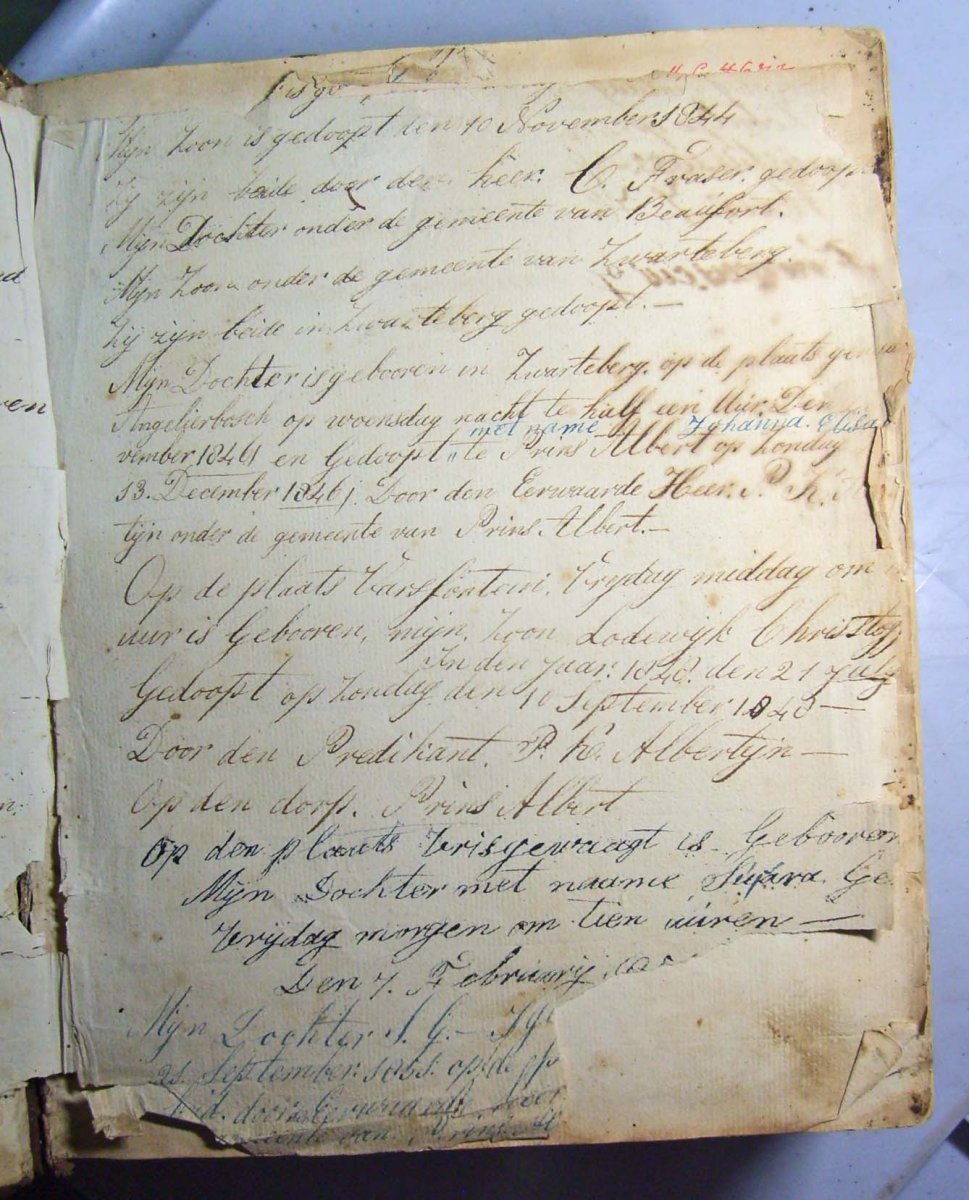 Mijn Zoon is gedoopt den 10 November 1844
Zij zijn beide door den heer. C. Fraser. gedoop
Mijn Dochter onder de gemeente van Beaufort.
Mijn Zoon onder de gemeente van Zwarteberg.
Zij zijn beide in Zwarteberg gedoopt. —
Mijn Dochter is gebooren in Zwarteberg. op de plaats
Angelierbosch op woensdag nacht te half een Uur. Den
met name Johanna. Elisa
vember 1846 en Gedoopt te Prins Albert op Zondag
13. December 1846. Door den Eerwaarde Heer. P. K.
tijn onder de gemeente van Prins Albert. —
Op de plaats Varsfontein, Vrijdag middag om
uur is Gebooren, mijn, Zoon Lodewijk Christoff
In den Jaar. 1848. den 21 July
Gedoopt op Zondag den 10 September 1848 —
Door den Predikant. P. K. Albertijn —
Op den dorp. Prins Albert
Op den plaats Vrisgewaagt is. Gebooren
Mijn Dochter met naame Ge
Vrijdag morgen om tien uuren —
Den 7. Februarij
Mijn Dochter S. G. —
September: op de
door Eerwaarde
meente van Prins Al